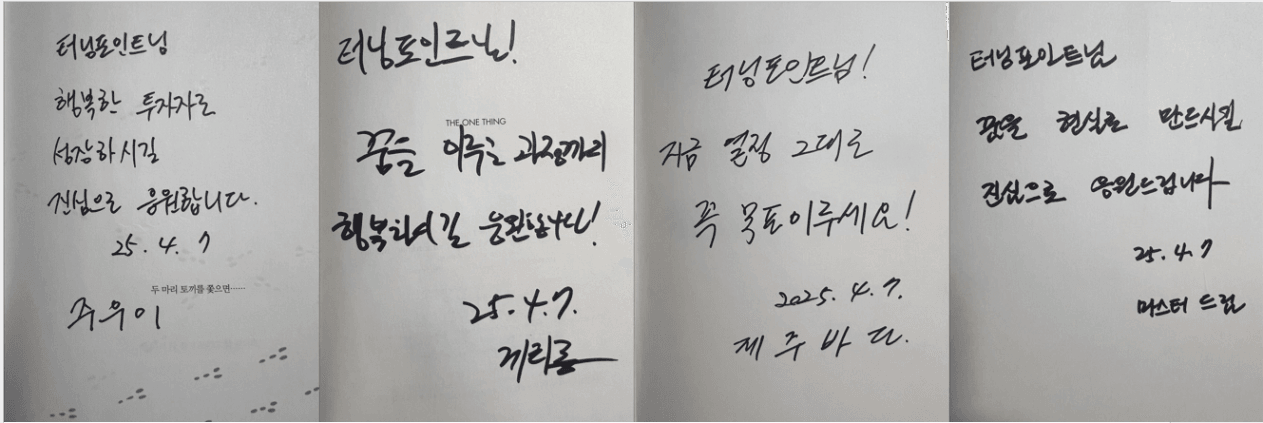 터닝포인트님
행복한 투자자로
성장하시길
진심으로 응원합니다.
25.4.7
두 마리 토끼를 쫓으면……
주우이
터닝포인트님!
THE ONE THING
꿈을 이루는 과정까지
행복하시길 응원합니다!
25.4.7.
게리롱
터닝포인트님!
지금 열정 그대로
꼭 목표이루세요!
2025.4.7.
제주바다.
터닝포인트님
꿈을 현실로 만드시길
진심으로 응원드립니다
25.4.7
마스터